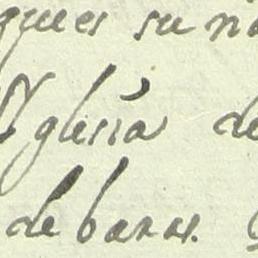 ques su na
Yglesia de
de baras.